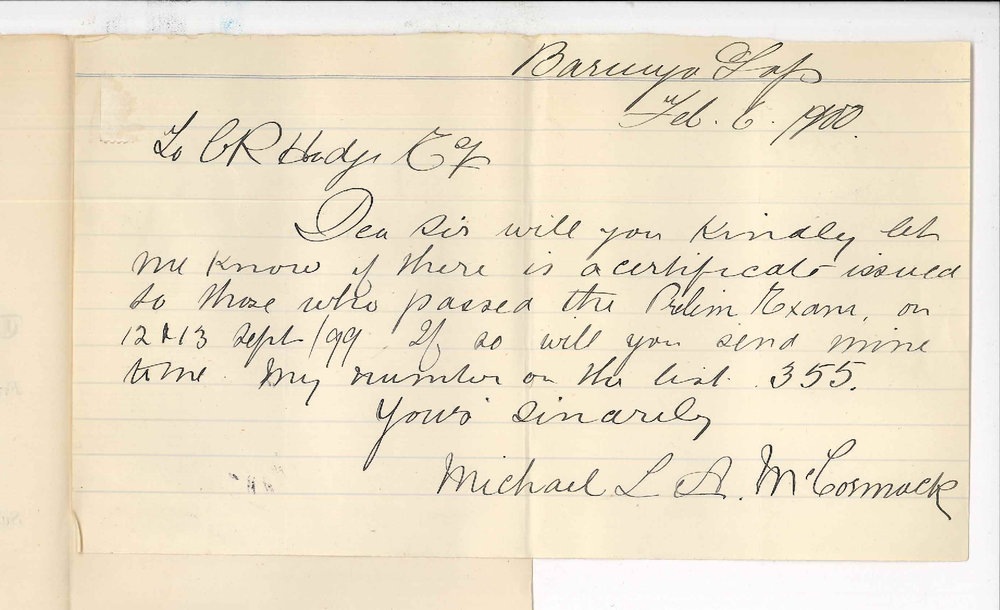 Barunga Gap
Feb. 6. 1900.
To C R Hodge Esq
Dear Sir will you Kindly let
me know if there is a certificate issued
to those who passed the Prelim Exam. on
12 & 13 Sept /99. If so will you send mine
to me. My number on the list. 355.
Yours sincerely
Michael L A. McCormack